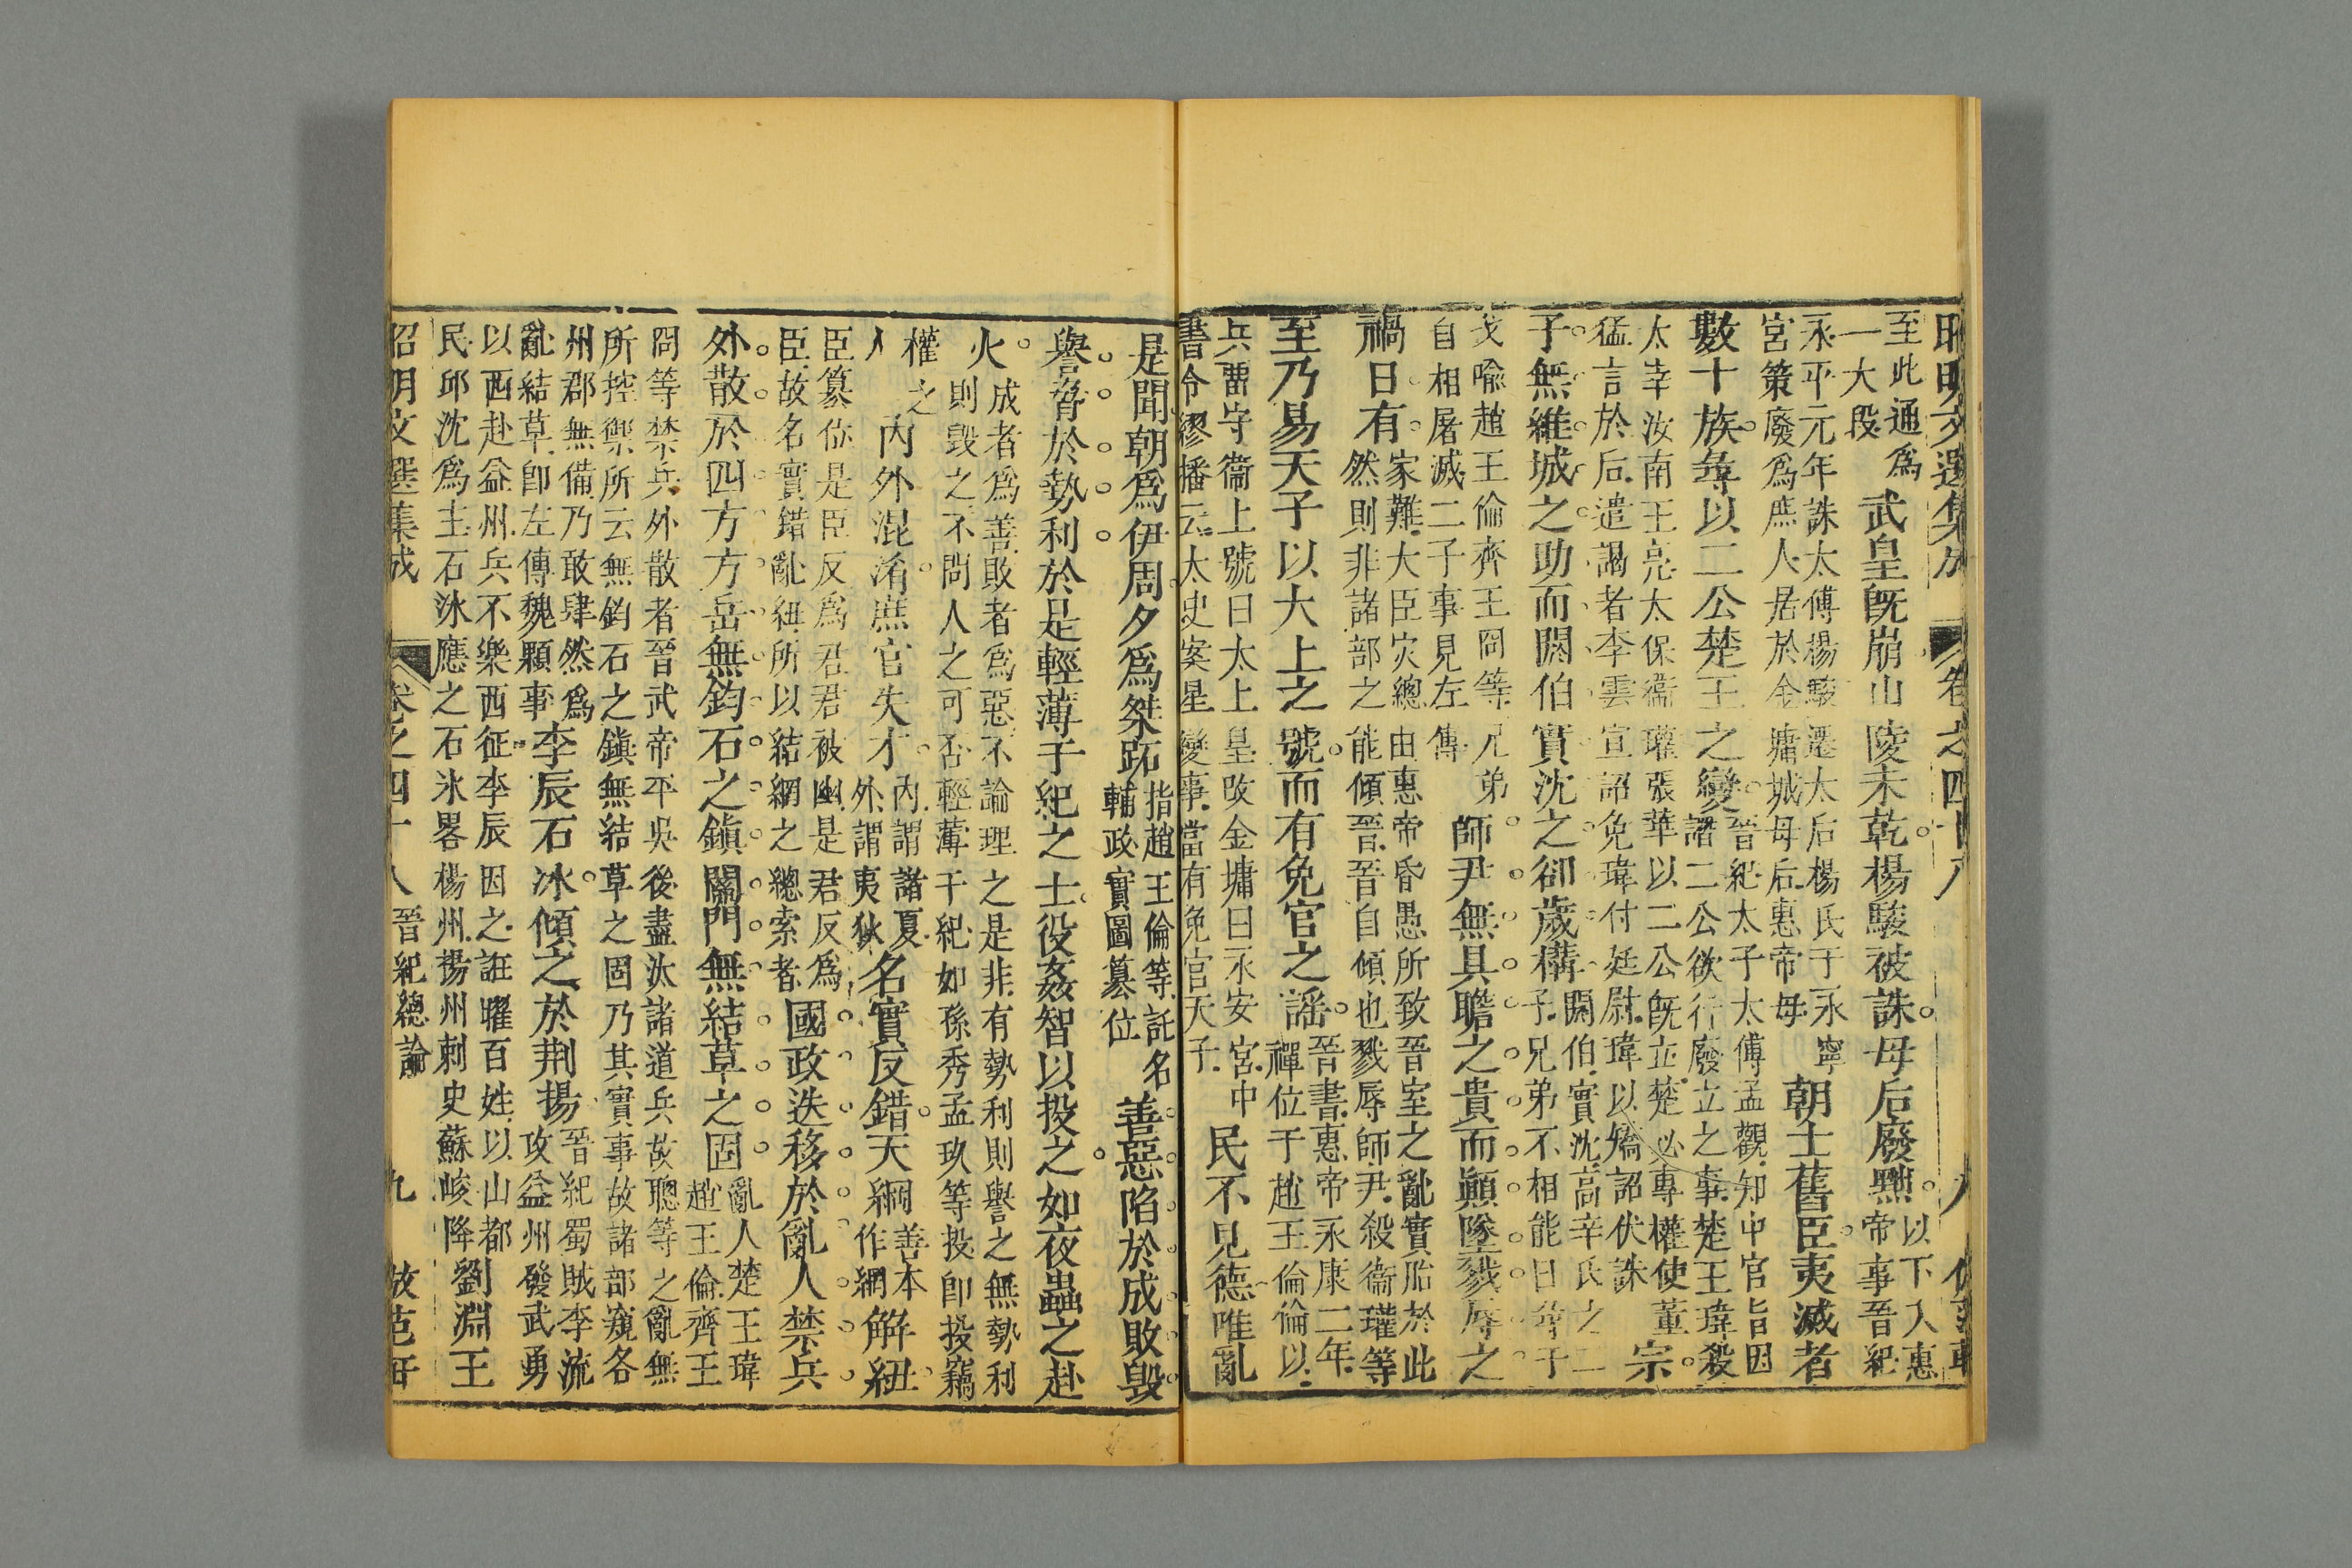 昭明文選集成 卷之四十八 八 仿范軒
至此通爲
一大段
武皇旣崩山陵未乾楊駿被誅母后廢黜
以下入惠
帝事晉紀
永平元年誅太傅楊駿遷太后楊氏于永寧
宮策廢爲庶人居於金墉城母后惠帝母
朝士舊臣夷滅者
數十族尋以二公楚王之變
晉紀太子太傅孟觀知中官旨因
諸二公欲行廢立之事楚王瑋殺
太宰汝南王亮太保衞瓘張華以二公旣立楚必專權使董
猛言於后遣謁者李雲宣詔免瑋付廷尉瑋以矯詔伏誅
宗
子無維城之助而閼伯實沈之郤歲構
閼伯實沈高辛氏之二
子兄弟不相能日尋干
戈喻趙王倫齊王冏等兄弟
自相屠滅二子事見左傳
師尹無具瞻之貴而顚墜戮辱之
禍日有
家難大臣灾總由惠帝昏愚所致晉室之亂實胎於此
然則非諸部之能傾晉晉自傾也戮辱師尹殺衞瓘等
至乃易天子以大上之號而有免官之謠
晉書惠帝永康二年
禪位于趙王倫倫以
兵畱守衞上號曰太上皇改金墉曰永安宮中
書令繆播云太史案星變事當有免官天子
民不見德唯亂
是聞朝爲伊周夕爲桀跖
指趙王倫等託名
輔政實圖簒位
善惡陷於成敗毁
譽脅於勢利於是輕薄干紀之士役姦智以投之如夜蟲之赴
火
成者爲善敗者爲惡不論理之是非有勢利則譽之無勢利
則毀之不問人之可否輕薄干紀如孫秀孟玖等投卽投竊
權
人之
內外混淆庶官失才
內謂諸夏
外謂夷狄
名實反錯天綱
善本
作網
解紐
臣簒你是臣反爲君君被幽是君反爲
臣故名實錯亂紐所以結網之總索者
國政迭移於亂人禁兵
外散於四方方岳無鈞石之鎭關門無結草之固
亂人楚王瑋
趙王倫齊王
冏等禁兵外散者晉武帝平吳後盡汰諸道兵故聰等之亂無
所控禦所云無鈞石之鎭無結草之固乃其實事故諸部窺各
州郡無備乃敢肆然爲
亂結草卽左傳魏顆事
李辰石冰傾之於荆揚
晉紀蜀賊李流
攻益州發武勇
以西赴益州兵不樂西征李辰因之誑曜百姓以山都
民邱沈爲主石冰應之石氷畧楊州揚州刺史蘇峻降
劉淵王
昭明文選集成 卷之四十八 晉紀總論 九 仿范軒